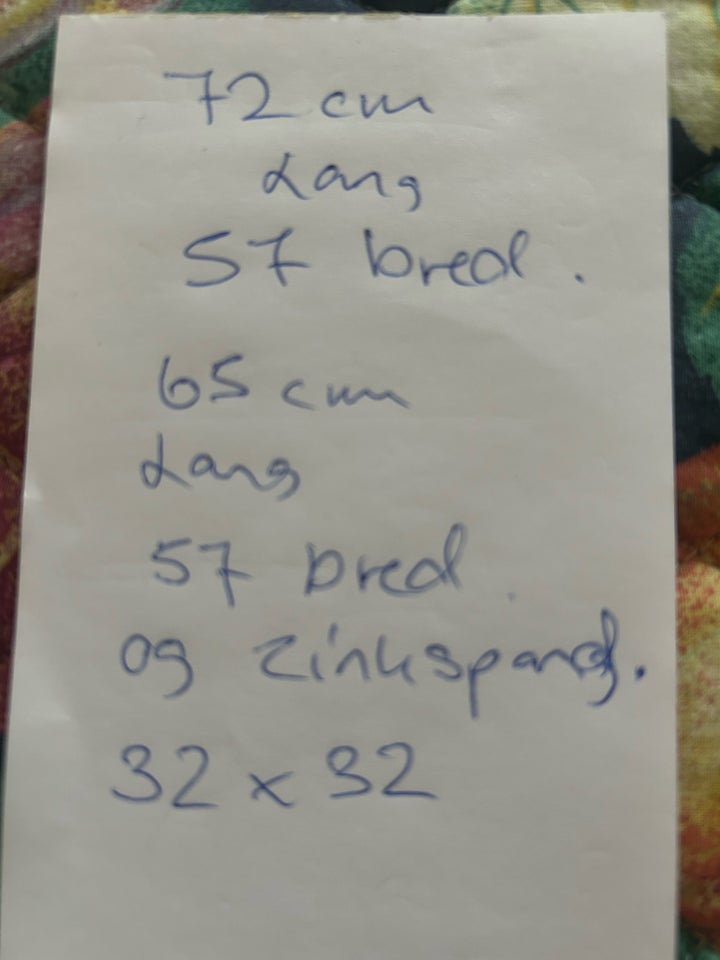 72 cm
Lang
57 bred.
65 cm
Lang
57 bred
og zinkspand.
32 x 32